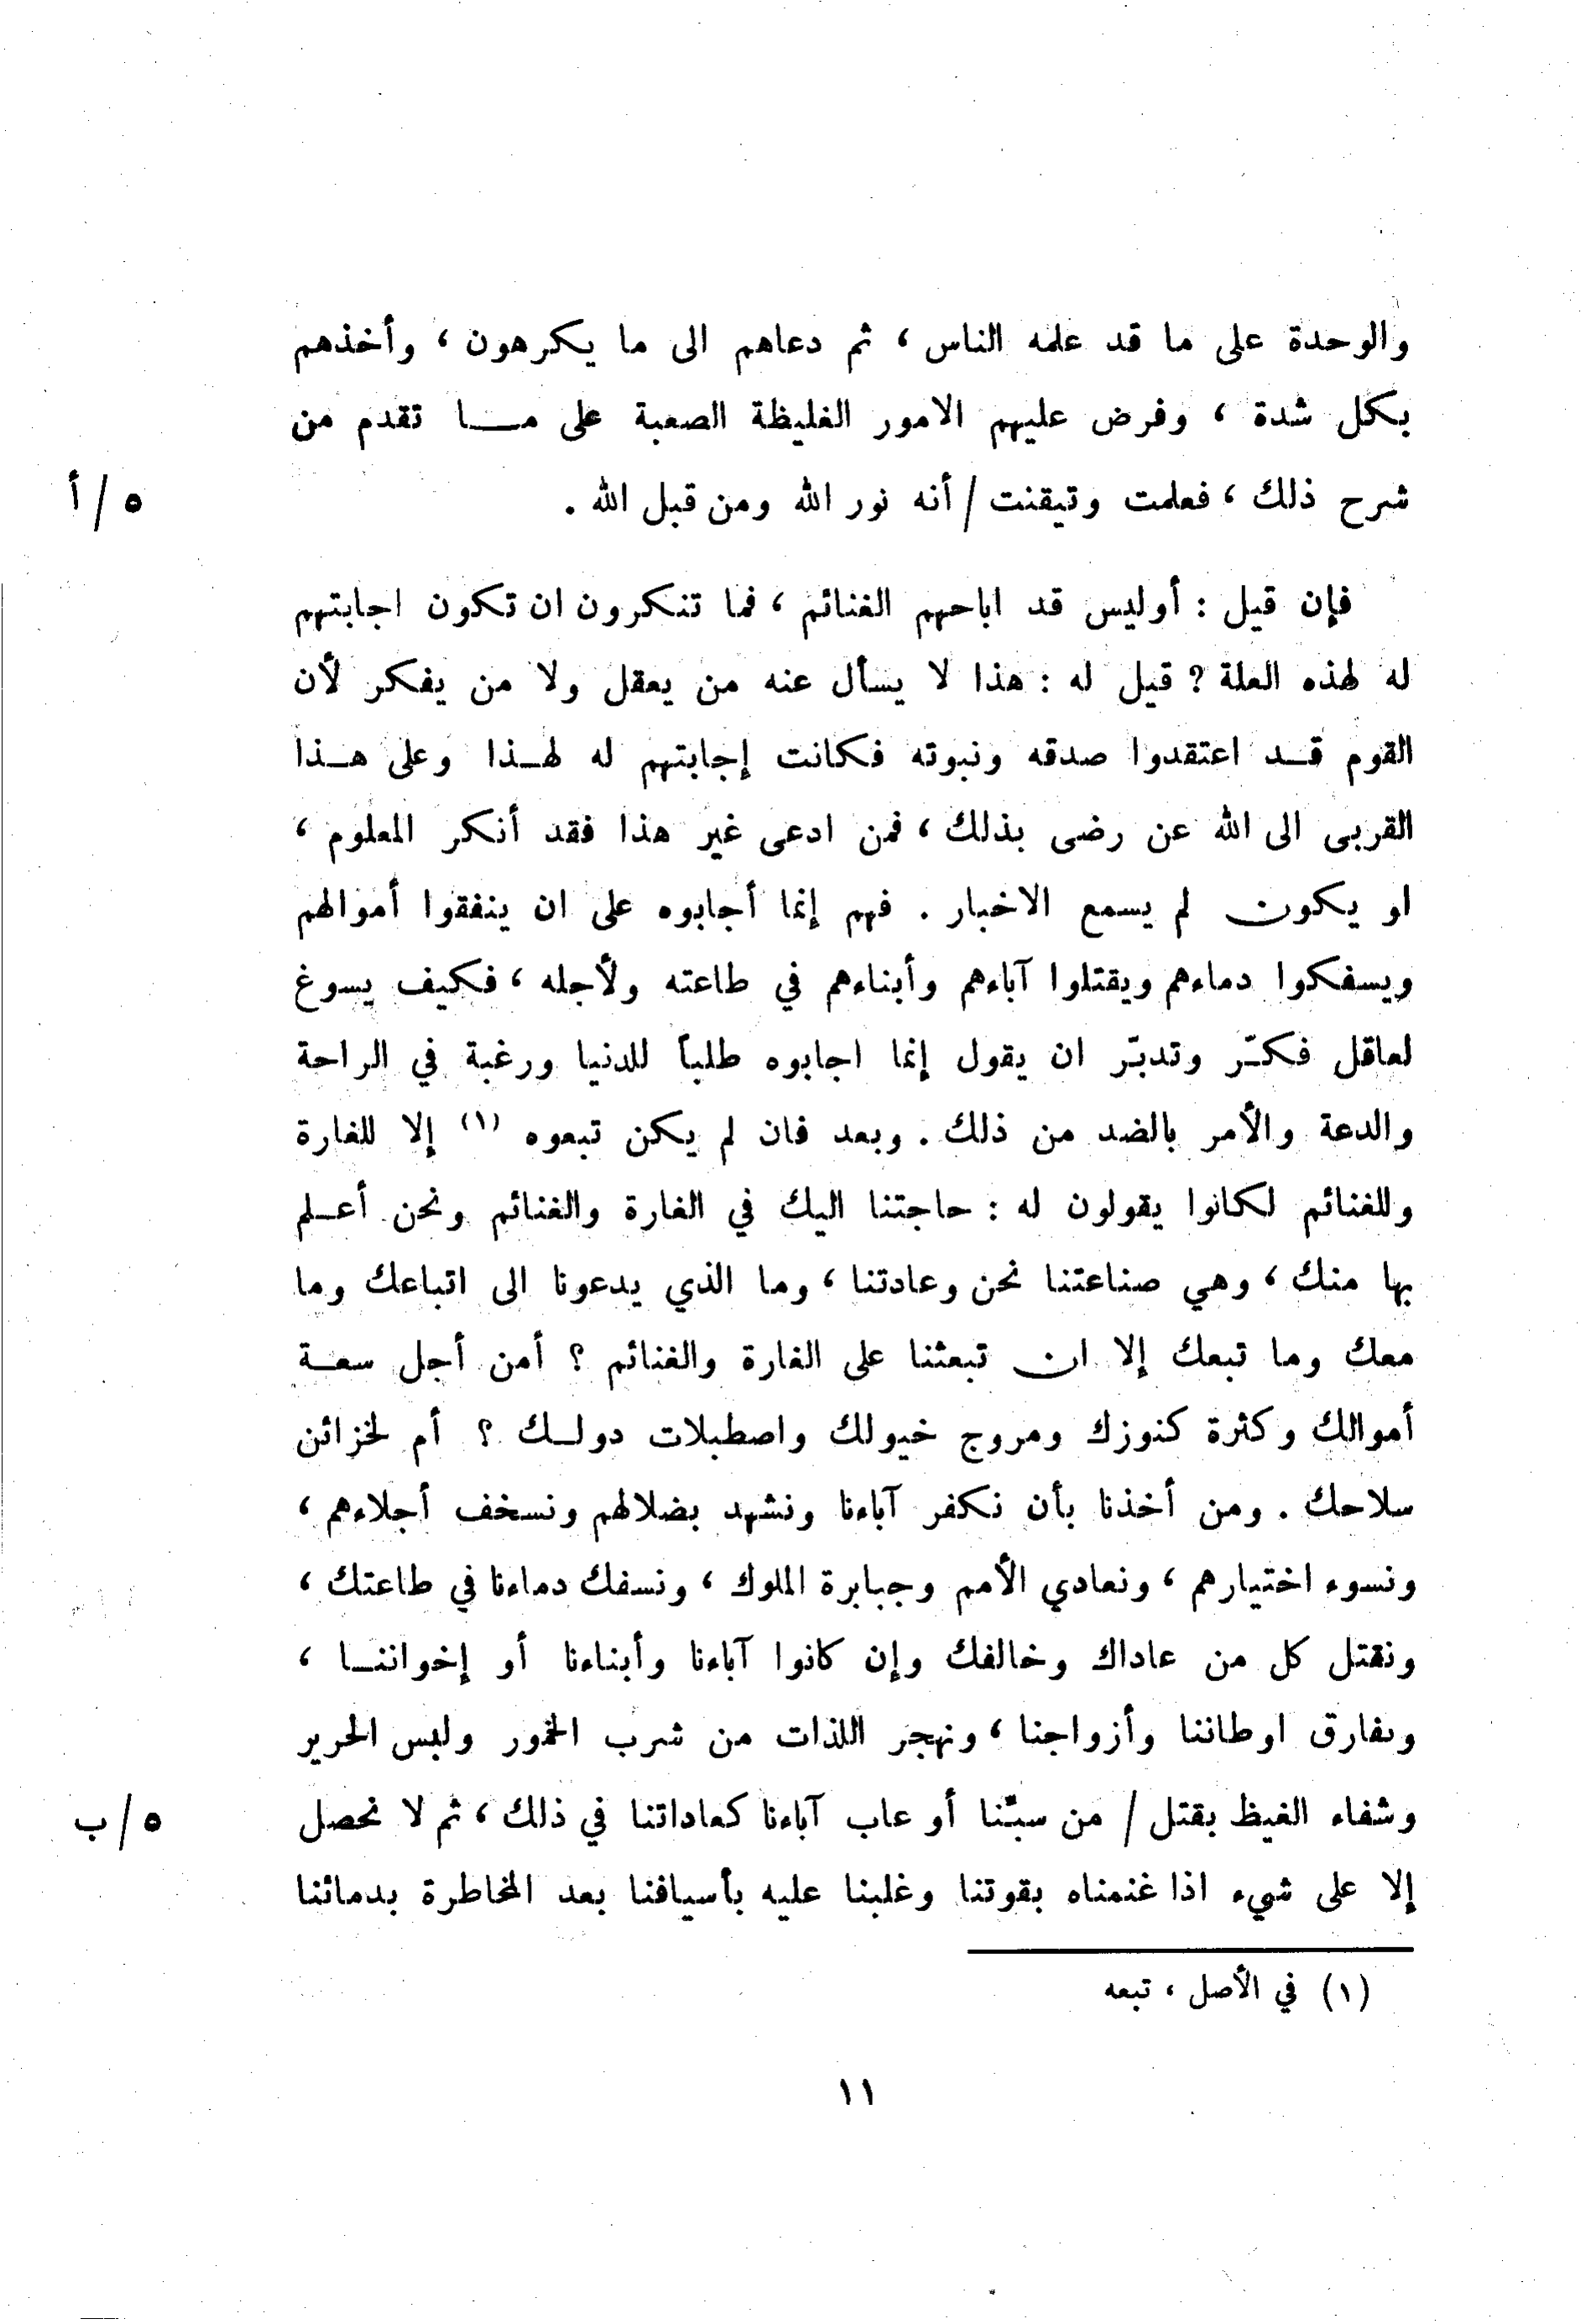 والوحدة على ما قد علمه الناس ، ثم دعاهم الى ما يكرهون ، وأخذهم
بكل شدة ، وفرض عليهم الامور الغليظة الصعبة على مـــا تقدم من
شرح ذلك ، فعلمت وتيقنت / أنه نور الله ومن قبل الله .
٥/أ
فإن قيل : أوليس قد اباحهم الغنائم ، فما تنكرون ان تكون اجابتهم
له لهذه العلة ? قيل له : هذا لا يسأل عنه من يعقل ولا من يفكر لأن
القوم قــد اعتقدوا صدقه ونبوته فكانت إجابتهم له لهـذا وعلى هـذا
القربى الى الله عن رضى بذلك ، فمن ادعى غير هذا فقد أنكر المعلوم ،
او يكون لم يسمع الاخبار . فهم إنما أجابوه على ان ينفقوا أموالهم
ويسفكوا دماءهم ويقتلوا آباءهم وأبناءهم في طاعته ولأجله ، فكيف يسوغ
لعاقل فكّر وتدبّر ان يقول إنما اجابوه طلباً للدنيا ورغبة في الراحة
والدعة والأمر بالضد من ذلك . وبعد فان لم يكن تبعوه (١) إلا للغارة
وللغنائم لكانوا يقولون له : حاجتنا اليك في الغارة والغنائم ونحن أعـلم
بها منك ، وهي صناعتنا نحن وعادتنا ، وما الذي يدعونا الى اتباعك وما
معك وما تبعك إلا ان تبعثنا على الغارة والغنائم ؟ أمن أجل سعـة
أموالك وكثرة كنوزك ومروج خيولك واصطبلات دولـك ؟ أم لخزائن
سلاحك . ومن أخذنا بأن نكفر آباءنا ونشهد بضلالهم ونسخف أجلاءهم ،
ونسوء اختيارهم ، ونعادي الأمم وجبابرة الملوك ، ونسفك دماءنا في طاعتك ،
ونقتل كل من عاداك وخالفك وإن كانوا آباءنا وأبناءنا أو إخواننـا ،
ونفارق اوطاننا وأزواجنا ، ونهجر اللذات من شرب الخمور ولبس الحرير
وشفاء الغيظ بقتل / من سبّنا أو عاب آباءنا كعاداتنا في ذلك ، ثم لا نحصل
٥/ب
إلا على شيء اذا غنمناه بقوتنا وغلبنا عليه بأسيافنا بعد المخاطرة بدمائنا
(١) في الأصل ، تبعه
١١